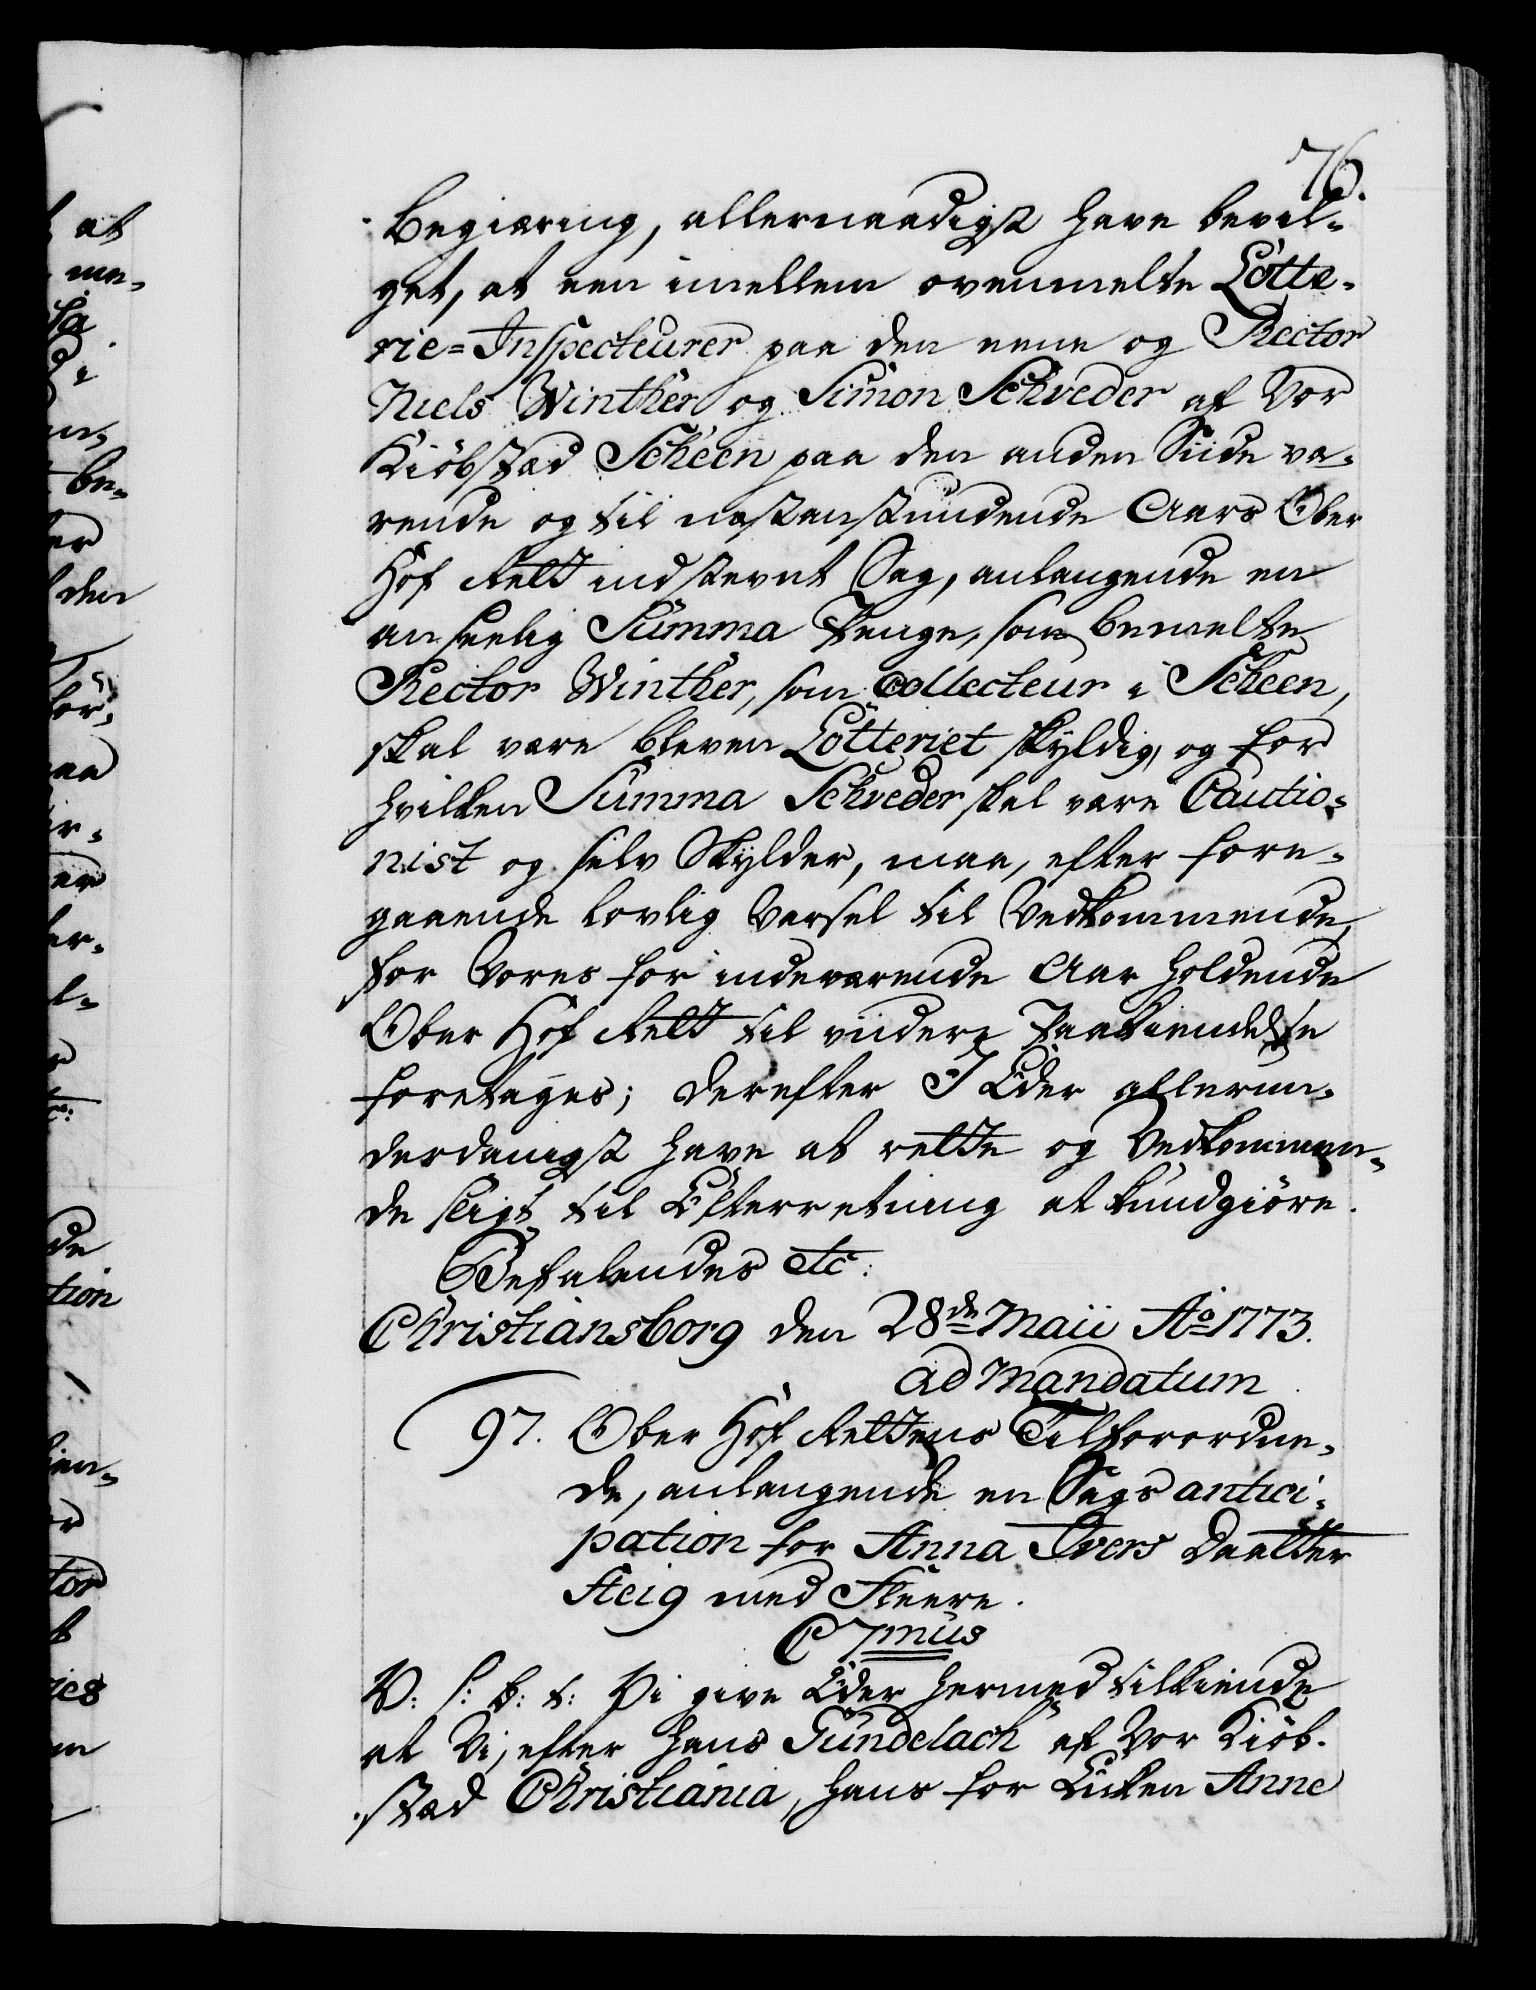 76.
Begiæring, allernaadigst have bevil-
get, at een imellem ovenmelte Lotte-
rie=Inspecteurer paa den eene og Rector
Niels Winther og Simon Schveder af Vor
Kiöbstæd Scheen paa den anden Siide væ-
rende og til næstanstundende Aars Ober
Hof Rett indstevnt Sag, anlangende en
anseelig Summa Penge, som bemelte
Rector Winther, som Collecteur i Scheen,
skal være bleven Lotteriet skyldig, og for
hvilken Summa Schveder skal være Cautio-
nist og selv Skylder, maa, efter fore-
gaaende lovlig Varsel til Vedkommende,
for Vores for indeværende Aar holdende
Ober Hof Rett til viidere Paakiendelse
foretages; derefter I Eder allerun-
derdanigst have at rette og Vedkommen-
de sligt til Efterretning at kundgiöre.
Befalendes etc:
Christiansborg den 28de Maii Ao 1773.
ad Mandatum
97. Ober Hof Rettens Tilforordne-
de, anlangende en Sags antici-
pation for Anna Ivers Daatter
Steig med Fleere.
C 7mus
V: S: G: T: Vi give Eder hermed tilkiende
at Vi, efter Hans Gundelach af Vor Kiöb-
stæd Christiania, hans for Enken Anne